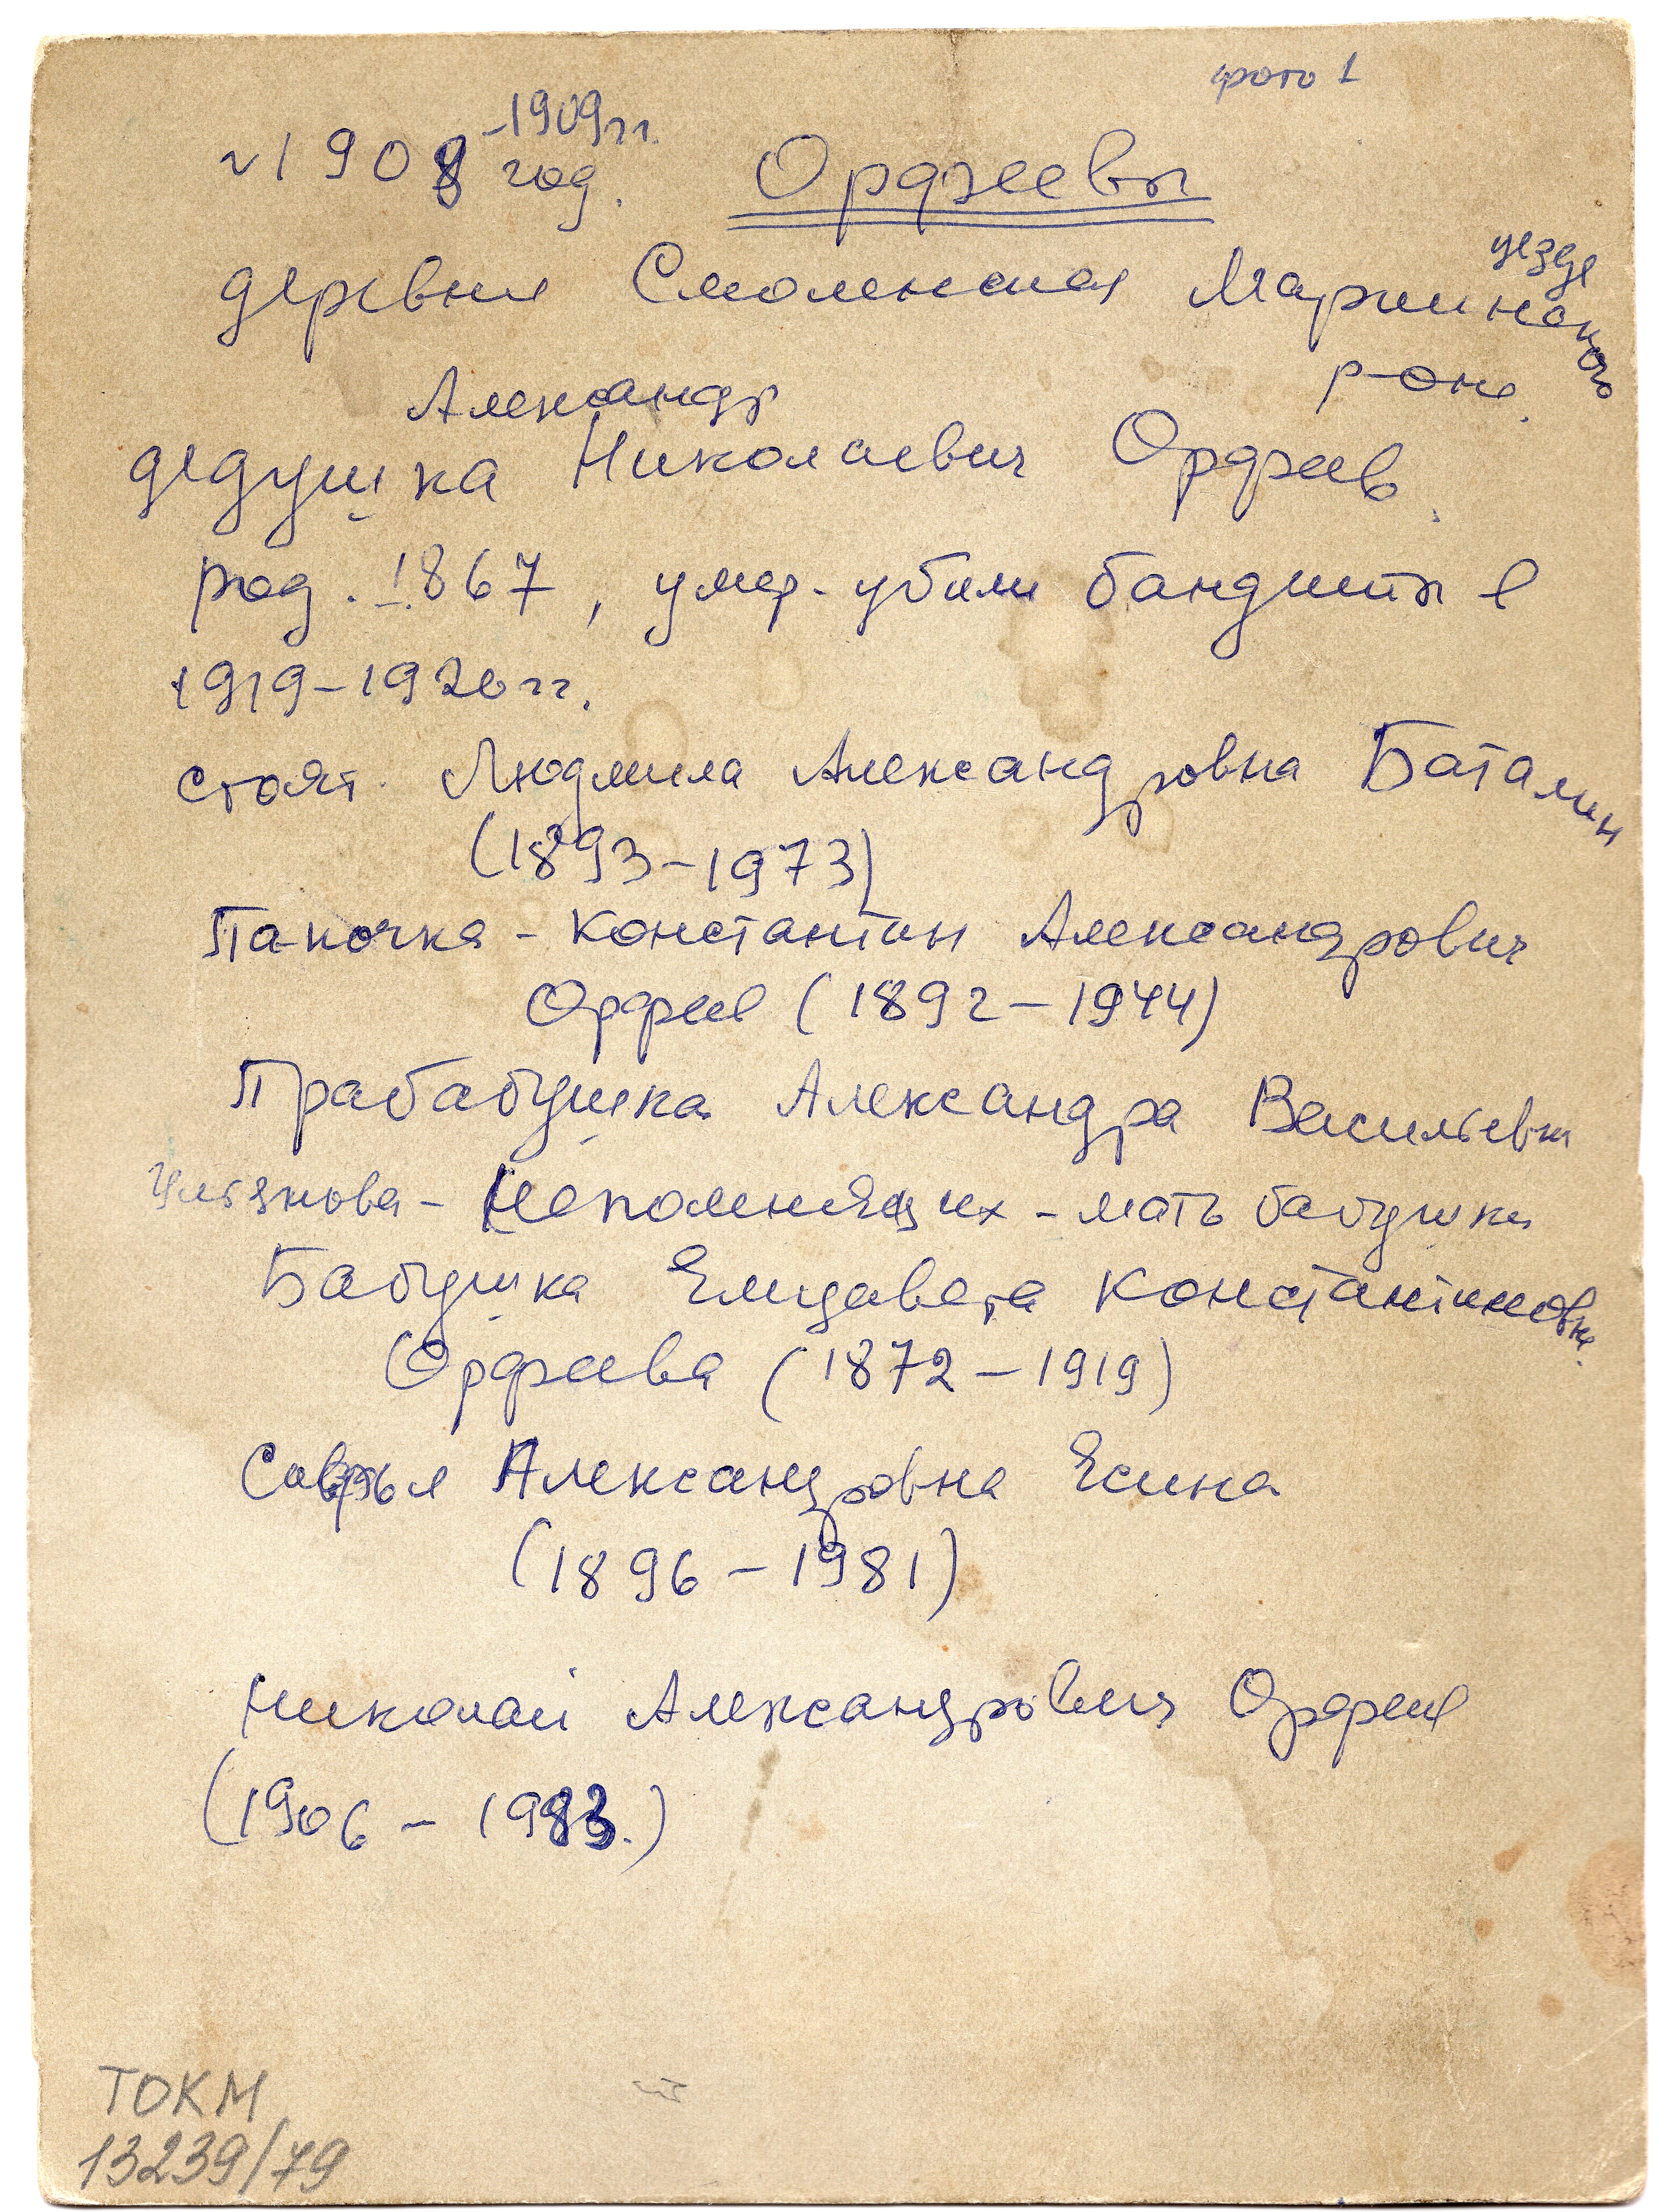 фото 1
-1909 гг.
~1908 год. Орфеевы
уезда
деревня Смоленская Мариинского
р-она.
Александр
дедушка Николаевич Орфеев.
род. 1867, умер. убили бандиты в
1919-1920 гг.
стоят. Людмила Александровна Баталин
(1893-1973)
Папочка - Константин Александрович
Орфеев (1892-1944)
Прабабушка Александра Васильевна
- Непомнящих - мать бабушки
Бабушка Елизавета Константиновна.
Орфеева (1872-1919)
Александровна Есина
(1896-1981)
Николай Александрович Орфеев
(1906-1983.)
ТОКМ
13239/79